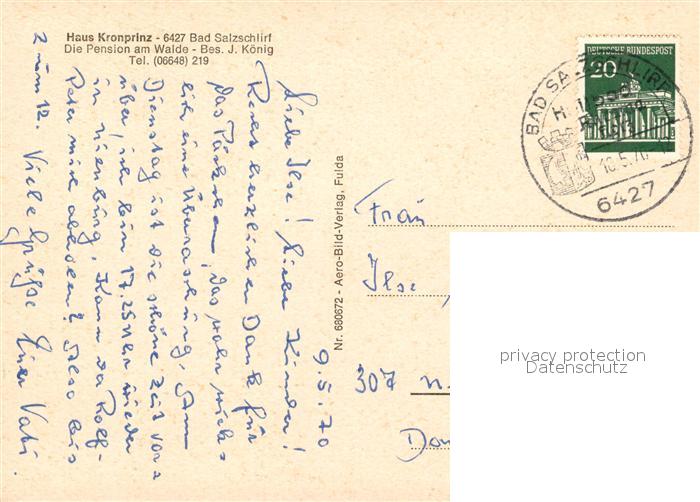 Haus Kronprinz - 6427 Bad Salzschlirf
Die Pension am Walde - Bes. J. König
Tel. (06648) 219
DEUTSCHE BUNDESPOST
20
BAD SALZSCHLIRF
6427
9.5.70
Liebe Ilse! Liebe Kinder!
Recht herzlichen Dank für
das Päckchen, das wahr wirkl
lich eine Überraschung. Am
Dienstag ist die schöne Zeit vor=
über, ich bin 17.25 Uhr wieder
in Nienburg, Kann da Rolf-
Peter mich abholen? Also bis
zum 12. Viele Grüße Euer Vati.
Nr. 680672 - Aero-Bild-Verlag, Fulda
Frau
Ilse
307 N
privacy protection
Datenschutz